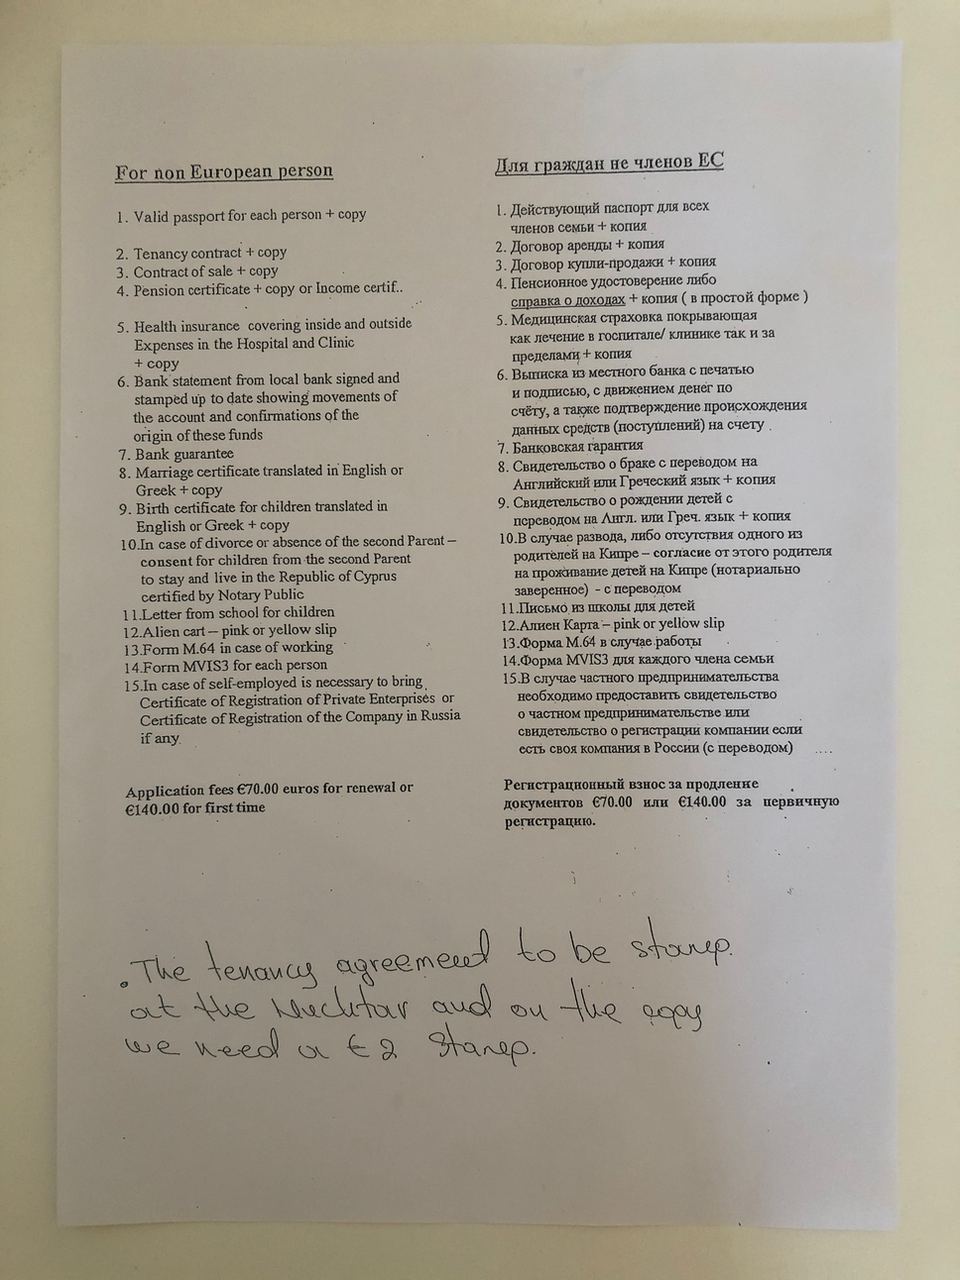 For non European person
1. Valid passport for each person + copy
2. Tenancy contract + copy
3. Contract of sale + copy
4. Pension certificate + copy or Income certif..
5. Health insurance covering inside and outside
Expenses in the Hospital and Clinic
+ copy
6. Bank statement from local bank signed and
stamped up to date showing movements of
the account and confirmations of the
origin of these funds
7. Bank guarantee
8. Marriage certificate translated in English or
Greek + copy
9. Birth certificate for children translated in
English or Greek + copy
10.In case of divorce or absence of the second Parent –
consent for children from the second Parent
to stay and live in the Republic of Cyprus
certified by Notary Public
11.Letter from school for children
12.Alien cart – pink or yellow slip
13.Form M.64 in case of working
14.Form MVIS3 for each person
15.In case of self-employed is necessary to bring
Certificate of Registration of Private Enterprises or
Certificate of Registration of the Company in Russia
if any.
Application fees €70.00 euros for renewal or
€140.00 for first time
Для граждан не членов ЕС
1. Действующий паспорт для всех
членов семьи + копия
2. Договор аренды + копия
3. Договор купли-продажи + копия
4. Пенсионное удостоверение либо
справка о доходах + копия ( в простой форме )
5. Медицинская страховка покрывающая
как лечение в госпитале/ клинике так и за
пределами + копия
6. Выписка из местного банка с печатью
и подписью, с движением денег по
счёту, а также подтверждение происхождения
данных средств (поступлений) на счету .
7. Банковская гарантия
8. Свидетельство о браке с переводом на
Английский или Греческий язык + копия
9. Свидетельство о рождении детей с
переводом на Англ. или Греч. язык + копия
10.В случае развода, либо отсутствия одного из
родителей на Кипре – согласие от этого родителя
на проживание детей на Кипре (нотариально
заверенное) - с переводом
11.Письмо из школы для детей
12.Алиен Карта – pink or yellow slip
13.Форма М.64 в случае работы
14.Форма MVIS3 для каждого члена семьи
15.В случае частного предпринимательства
необходимо предоставить свидетельство
о частном предпринимательстве или
свидетельство о регистрации компании если
есть своя компания в России (с переводом) ....
Регистрационный взнос за продление
документов €70.00 или €140.00 за первичную
регистрацию.
. The tenancy agreement to be stamp.
at the Muchtar and on the copy
we need a € 2 Stamp.